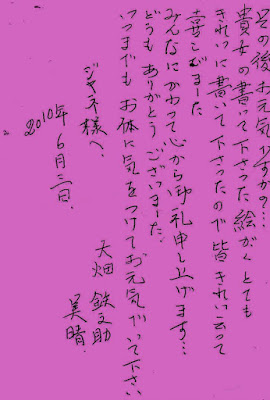 その後お元気ですかの?…
貴女の書いて下さった絵がとても
きれいに書いて下さったので皆きれい云って
喜こびました
みんなにかわって心から御礼申し上げます…
どうもありがとうございました。
いつまでもお体に気をつけてお元気でいて下さい
ジャネ様へ、
2010年6月三日、
大畑 鉄之助
美晴